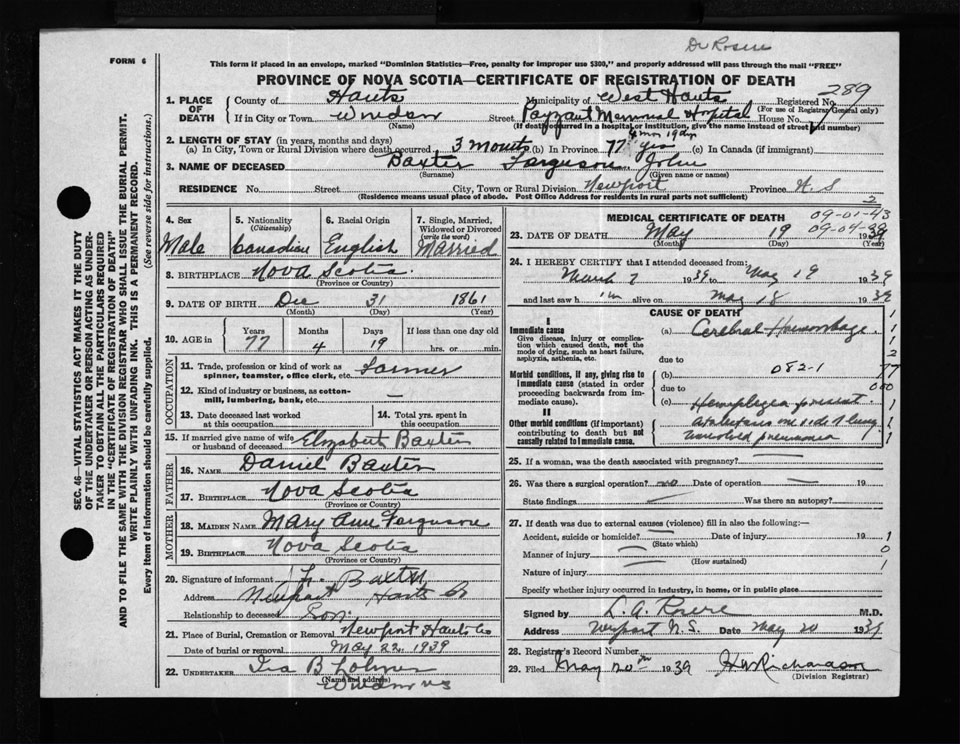 Dr Rosere
FORM 6
This form if placed in an envelope, marked "Dominion Statistics—Free, penalty for improper use $300," and properly addressed will pass through the mail "FREE"
PROVINCE OF NOVA SCOTIA—CERTIFICATE OF REGISTRATION OF DEATH
289
1. PLACE OF DEATH
County of Hants Municipality of West Hants Registered No.
(For use of Registrar General only)
If in City or Town Windsor Street Payzant Memorial Hospital House No.
(Name) (If death occurred in a hospital or institution, give the name instead of street and number)
4 mon 19 dys
2. LENGTH OF STAY (in years, months and days)
(a) In City, Town or Rural Division where death occurred 3 months (b) In Province 77 yrs (c) In Canada (if immigrant)
3. NAME OF DECEASED Baxter Ferguson John
(Surname) (Given name or names)
RESIDENCE No. Street City, Town or Rural Division Newport Province N.S
(Residence means usual place of abode. Post Office Address for residents in rural parts not sufficient)
2
SEC. 46—VITAL STATISTICS ACT MAKES IT THE DUTY
OF THE UNDERTAKER OR PERSON ACTING AS UNDER-
TAKER TO OBTAIN ALL THE PARTICULARS REQUIRED
IN THE "CERTIFICATE OF REGISTRATION OF DEATH"
AND TO FILE THE SAME WITH THE DIVISION REGISTRAR WHO SHALL ISSUE THE BURIAL PERMIT.
WRITE PLAINLY WITH UNFADING INK. THIS IS A PERMANENT RECORD.
Every item of Information should be carefully supplied. (See reverse side for instructions.)
4. Sex
Male
5. Nationality
(Citizenship)
Canadian
6. Racial Origin
English
7. Single, Married,
Widowed or Divorced
(write the word)
Married
8. BIRTHPLACE Nova Scotia
(Province or Country)
9. DATE OF BIRTH Dec 31 1861
(Month) (Day) (Year)
10. AGE in
Years Months Days If less than one day old
77 4 19 hrs. or min.
OCCUPATION
11. Trade, profession or kind of work as
spinner, teamster, office clerk, etc. Farmer
12. Kind of industry or business, as cotton-
mill, lumbering, bank, etc. —
13. Date deceased last worked
at this occupation
14. Total yrs. spent in
this occupation
15. If married give name of wife
or husband of deceased Elizabeth Baxter
FATHER
16. NAME Daniel Baxter
17. BIRTHPLACE Nova Scotia
(Province or Country)
MOTHER
18. MAIDEN NAME Mary Ann Ferguson
19. BIRTHPLACE Nova Scotia
(Province or Country)
20. Signature of informant Baxter
Address Newport Hants Co
Relationship to deceased Son
21. Place of Burial, Cremation or Removal Newport Hants Co
Date of burial or removal May 22, 1939
22. UNDERTAKER Ira B Lohnes
(Name and address)
Windsor NS
MEDICAL CERTIFICATE OF DEATH
09-01-43
09-04-39
23. DATE OF DEATH May 19 1939
(Month) (Day) (Year)
24. I HEREBY CERTIFY that I attended deceased from:
March 7 1939 to May 19 1939
and last saw h im alive on May 18 1939
CAUSE OF DEATH
I
Immediate cause
Give disease, injury or complica-
tion which caused death, not the
mode of dying, such as heart failure,
asphyxia, asthenia, etc.
(a) Cerebral Haemorrhage
due to
Morbid conditions, if any, giving rise to
Immediate cause (stated in order
proceeding backwards from im-
mediate cause).
(b) 082-1
due to
(c) Hemiplegia present
II
Other morbid conditions (if important)
contributing to death but not
causally related to Immediate cause.
Atelectasis one side of lung
unresolved pneumonia
1
1
1
2
77
000
1
1
1
25. If a woman, was the death associated with pregnancy? —
26. Was there a surgical operation? no Date of operation — 19
State findings — Was there an autopsy?
27. If death was due to external causes (violence) fill in also the following:—
Accident, suicide or homicide? — Date of injury 19 1
(State which)
Manner of injury — 0
(How sustained)
Nature of injury — 1
Specify whether injury occurred in industry, in home, or in public place
Signed by L. A. Rosere M.D.
Address Newport N.S. Date May 20 1939
28. Registrar's Record Number
29. Filed May 20th 1939 HW Richardson
(Division Registrar)